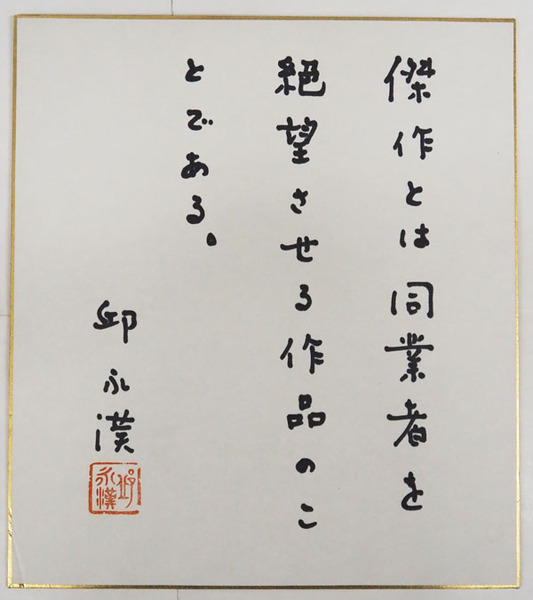 傑作とは同業者を
絶望させる作品のこ
とである。
邱永漢
邱永漢